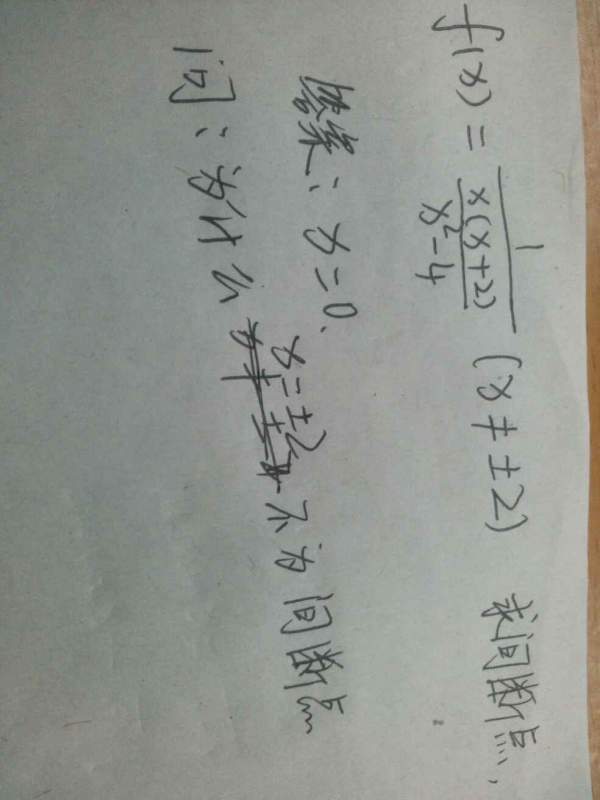 f(x) = 1/(x(x+2)/(x²-4)) (x≠±2) 求间断点.
答案: x=0.
问: 为什么 x=±2 不为间断点